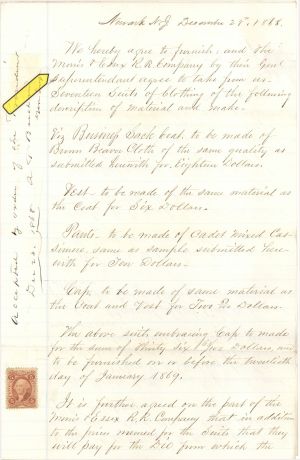 Newark N.J. December 28th, 1868.
We hereby agree to furnish, and the
Morris & Essex R.R. Company by their Genl
Superintendant agree to take from us
Seventeen Suits of Clothing of the following
description of material and make.
Viz Business Sack Coat to be made of
Brown Beaver Cloth of the same quality as
submitted herewith for Eighteen Dollars.
Vest to be made of the same material as
the Coat for Six Dollars.
Pants to be made of Cadet Mixed Cas-
simere, same as sample submitted here-
with for Ten Dollars.
Cap, to be made of same material as
the Coat and Vest for Two Dollars.
The above suits embracing Cap to made
for the sum of thirty Six Dollars, and
to be furnished on or before the twentieth
day of January 1869.
It is further agreed on the part of the
Morris & Essex R.R. Company that in addition
to the prices named for the Suits that they
will pay for the Die from which the
Accepted by order of the
Dec 28. 1868